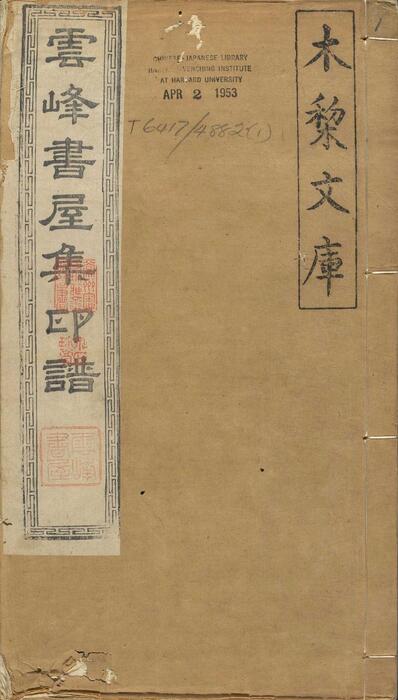 木棃文庫
CHINESE-JAPANESE LIBRARY
HARVARD-YENCHING INSTITUTE
AT HARVARD UNIVERSITY
APR 2 1953
T 6417/4882(1)
1
雲峰書屋集印譜
雲峰書屋